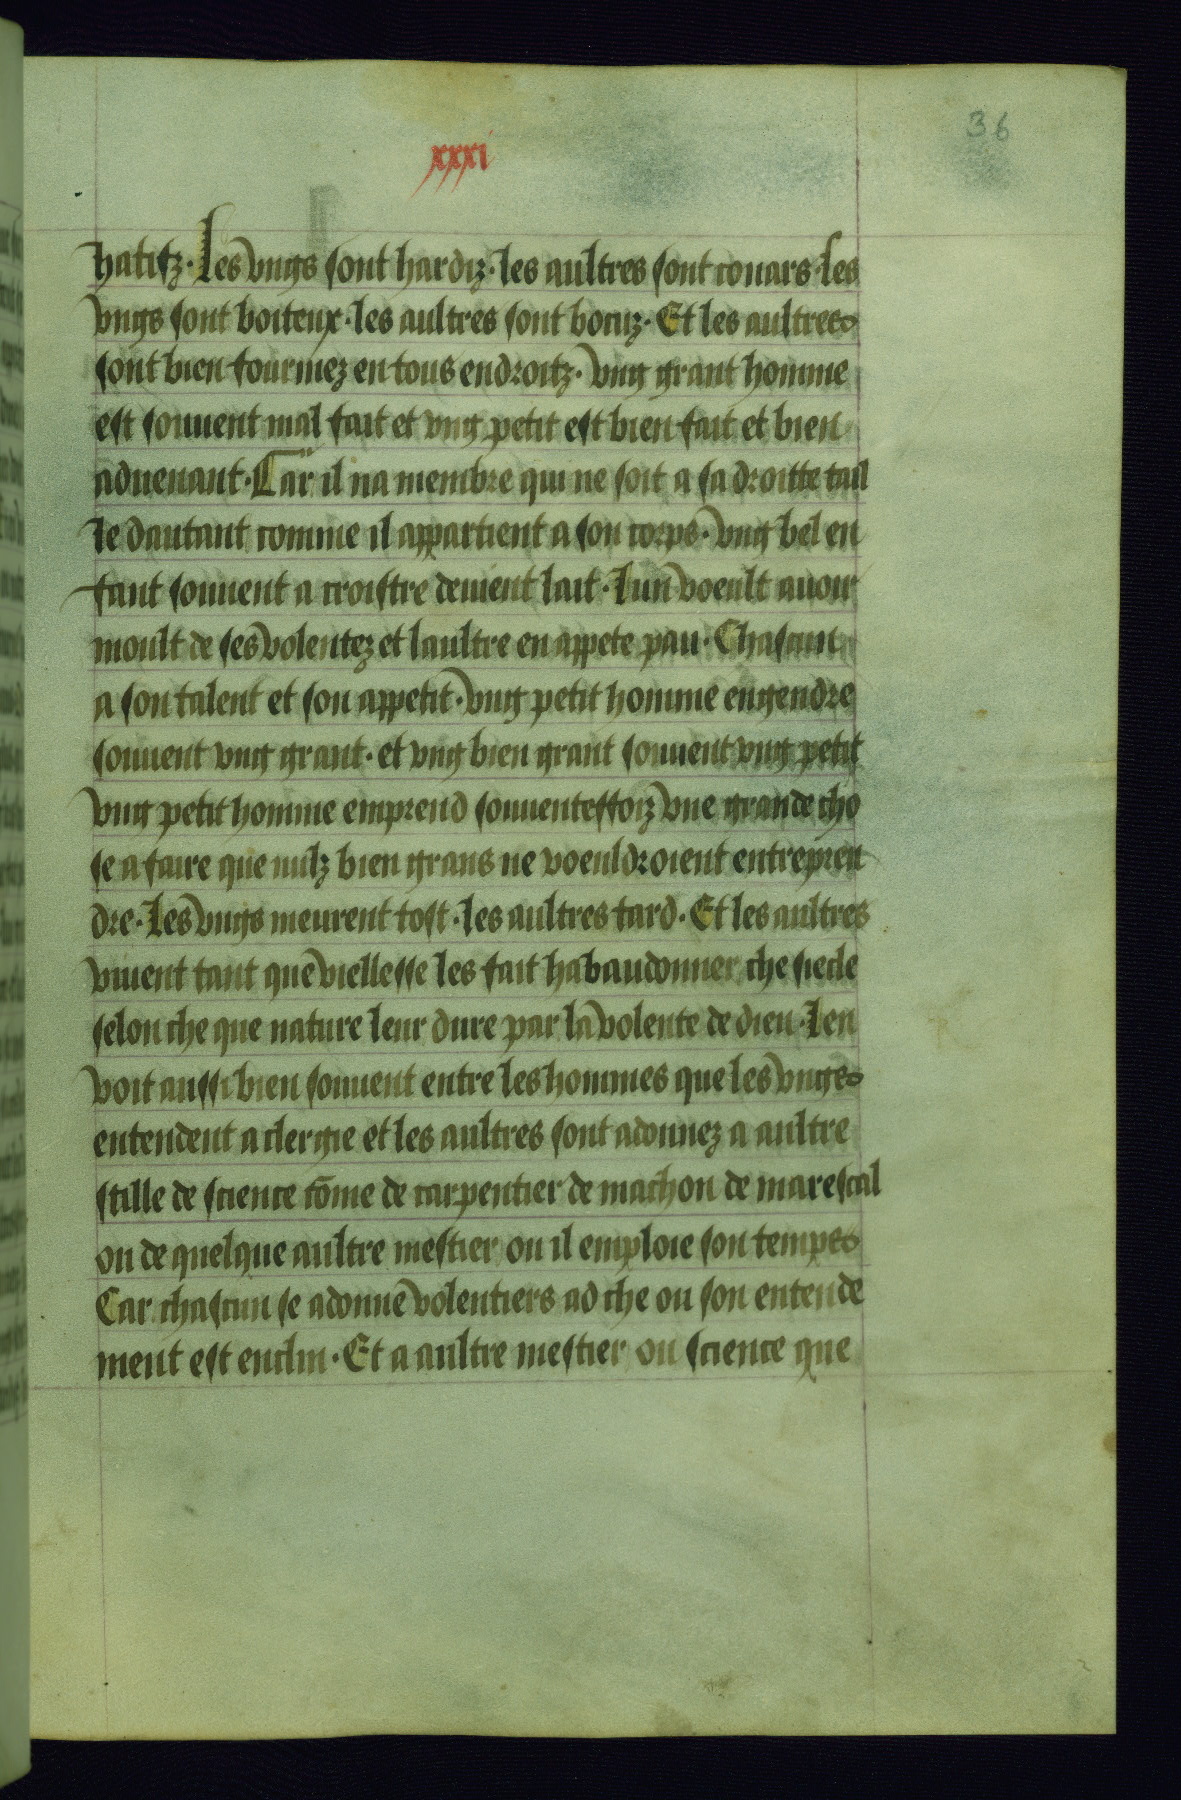 36
xxxi
hatifz · Les vngs sont hardiz · les aultres sont couars · les
vngs sont boiteux · les aultres sont bocuz · Et les aultres
sont bien fourmez en tous endroitz · vng grant homme
est souuent mal fait et vng petit est bien fait et bien
aduenant · Car il na membre qui ne soit a sa droitte tail
le dautant comme il appartient a son corps · vng bel en
fant souuent a croistre deuient lait · Lun voeult auoir
moult de ses volentez et laultre en appete pau · Chascun
a son talent et son appetit · vng petit homme engendre
souuent vng grant · et vng bien grant souuent vng petit
vng petit homme emprend souuenteffoiz vne grande cho
se a faire que nulz bien grans ne voeuldroient entrepren
dre · Les vngs meurent tost · les aultres tard · Et les aultres
viuent tant que viellesse les fait habandonner che siecle
selon che que nature leur dure par la volente de dieu · Len
voit aussi bien souuent entre les hommes que les vngs
entendent a clergie et les aultres sont adonnez a aultre
stille de science cōme de carpentier de machon de marescal
ou de quelque aultre mestier ou il emploie son temps
Car chascun se adonne volentiers ad che ou son entende
ment est enclin · Et a aultre mestier ou science que